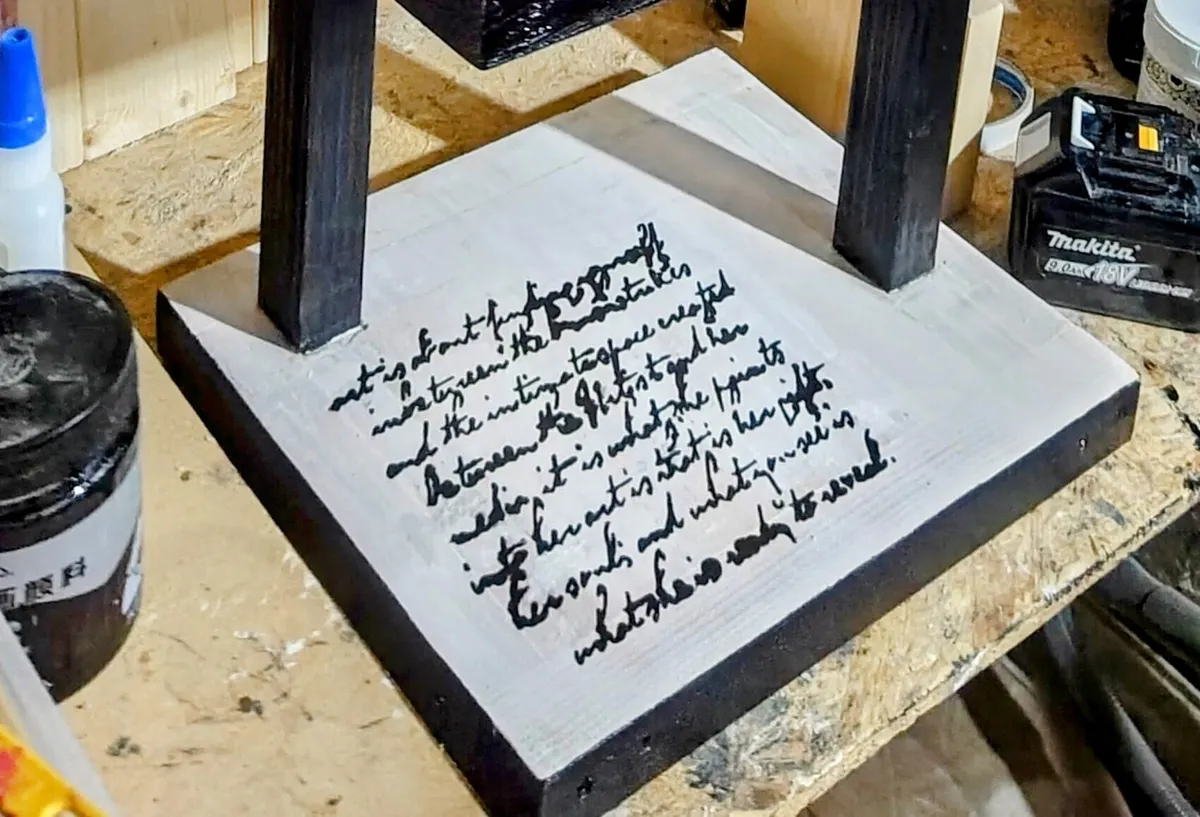 art is about finding yourself
inbetween the bronstrikis
and the intimate space created
between the artist and her
media, it is what she paints
into her art is that is her gift,
her souls and what you see is
what she is ready to reveal.
makita
18V